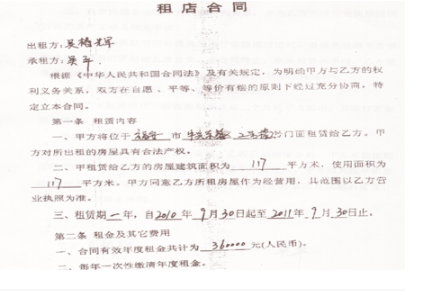 租店合同
出租方：吴
承租方：
根据《中华人民共和国合同法》及有关规定，为明确甲方与乙方的权
利义务关系，双方在自愿、平等、等价有偿的原则下经过充分协商，特
定立本合同。
第一条 租赁内容
一、甲方将位于 市 门面租赁给乙方。甲
方对所出租的房屋具有合法产权。
二、甲租赁给乙方的房屋建筑面积为 117 平方米，使用面积为
117 平方米。甲方同意乙方所租房屋作为经营用，其范围以乙方营
业执照为准。
三、租赁期一年，自2010年9月30日起至2011年9月30日止。
第二条 租金及其它费用
一、合同有效年度租金共计为 360000 元(人民币)。
二、每年一次性缴清年度租金。